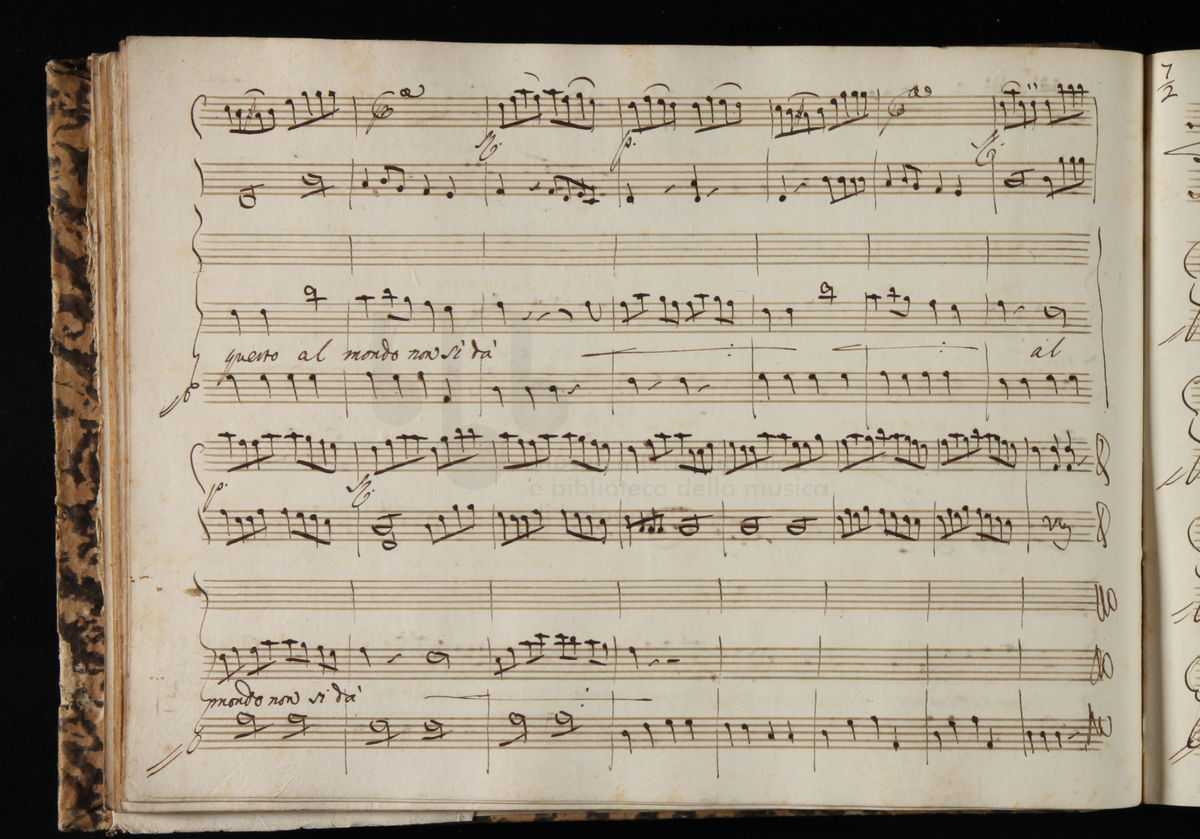 72
p.
questo al mondo non si dà al
p.
mondo non si dà
e biblioteca della musica